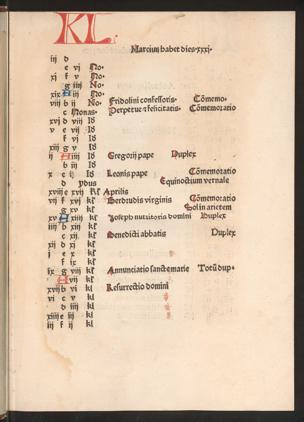 KL
Marcium habet dies·xxxj·
iij d
e vj No·
xj f v No·
g iiij No·
xix A iij No·
viij b ij No· Fridolini confessoris· Cōmemo·
c Nonas· Perpetue ⁊ felicitatis· Cōmemoratio
xvj d viij Id
v e vij Id
f vj Id
xiij g v Id
ij A iiij Id Gregorij pape Duplex
b iij Id
x c ij Id Leonis pape Cōmemoratio
d ydus Equinoctium vernale
xviij e xvij kł Aprilis
vij f xvj kł Gerdrudis virginis Cōmemoratio
g xv kł Sol in arietem
xv A xiiij kł Joseph nutritoris domini Duplex
iiij b xiij kł
c xij kł Benedicti abbatis Duplex
xij d xj kł
j e x kł
f ix kł
ix g viij kł Annunciatio sancte marie Totū dup·
A vij kł
xvij b vj kł Resurrectio domini
vj c v kł
d iiij kł
xiiij e iij kł
iij f ij kł